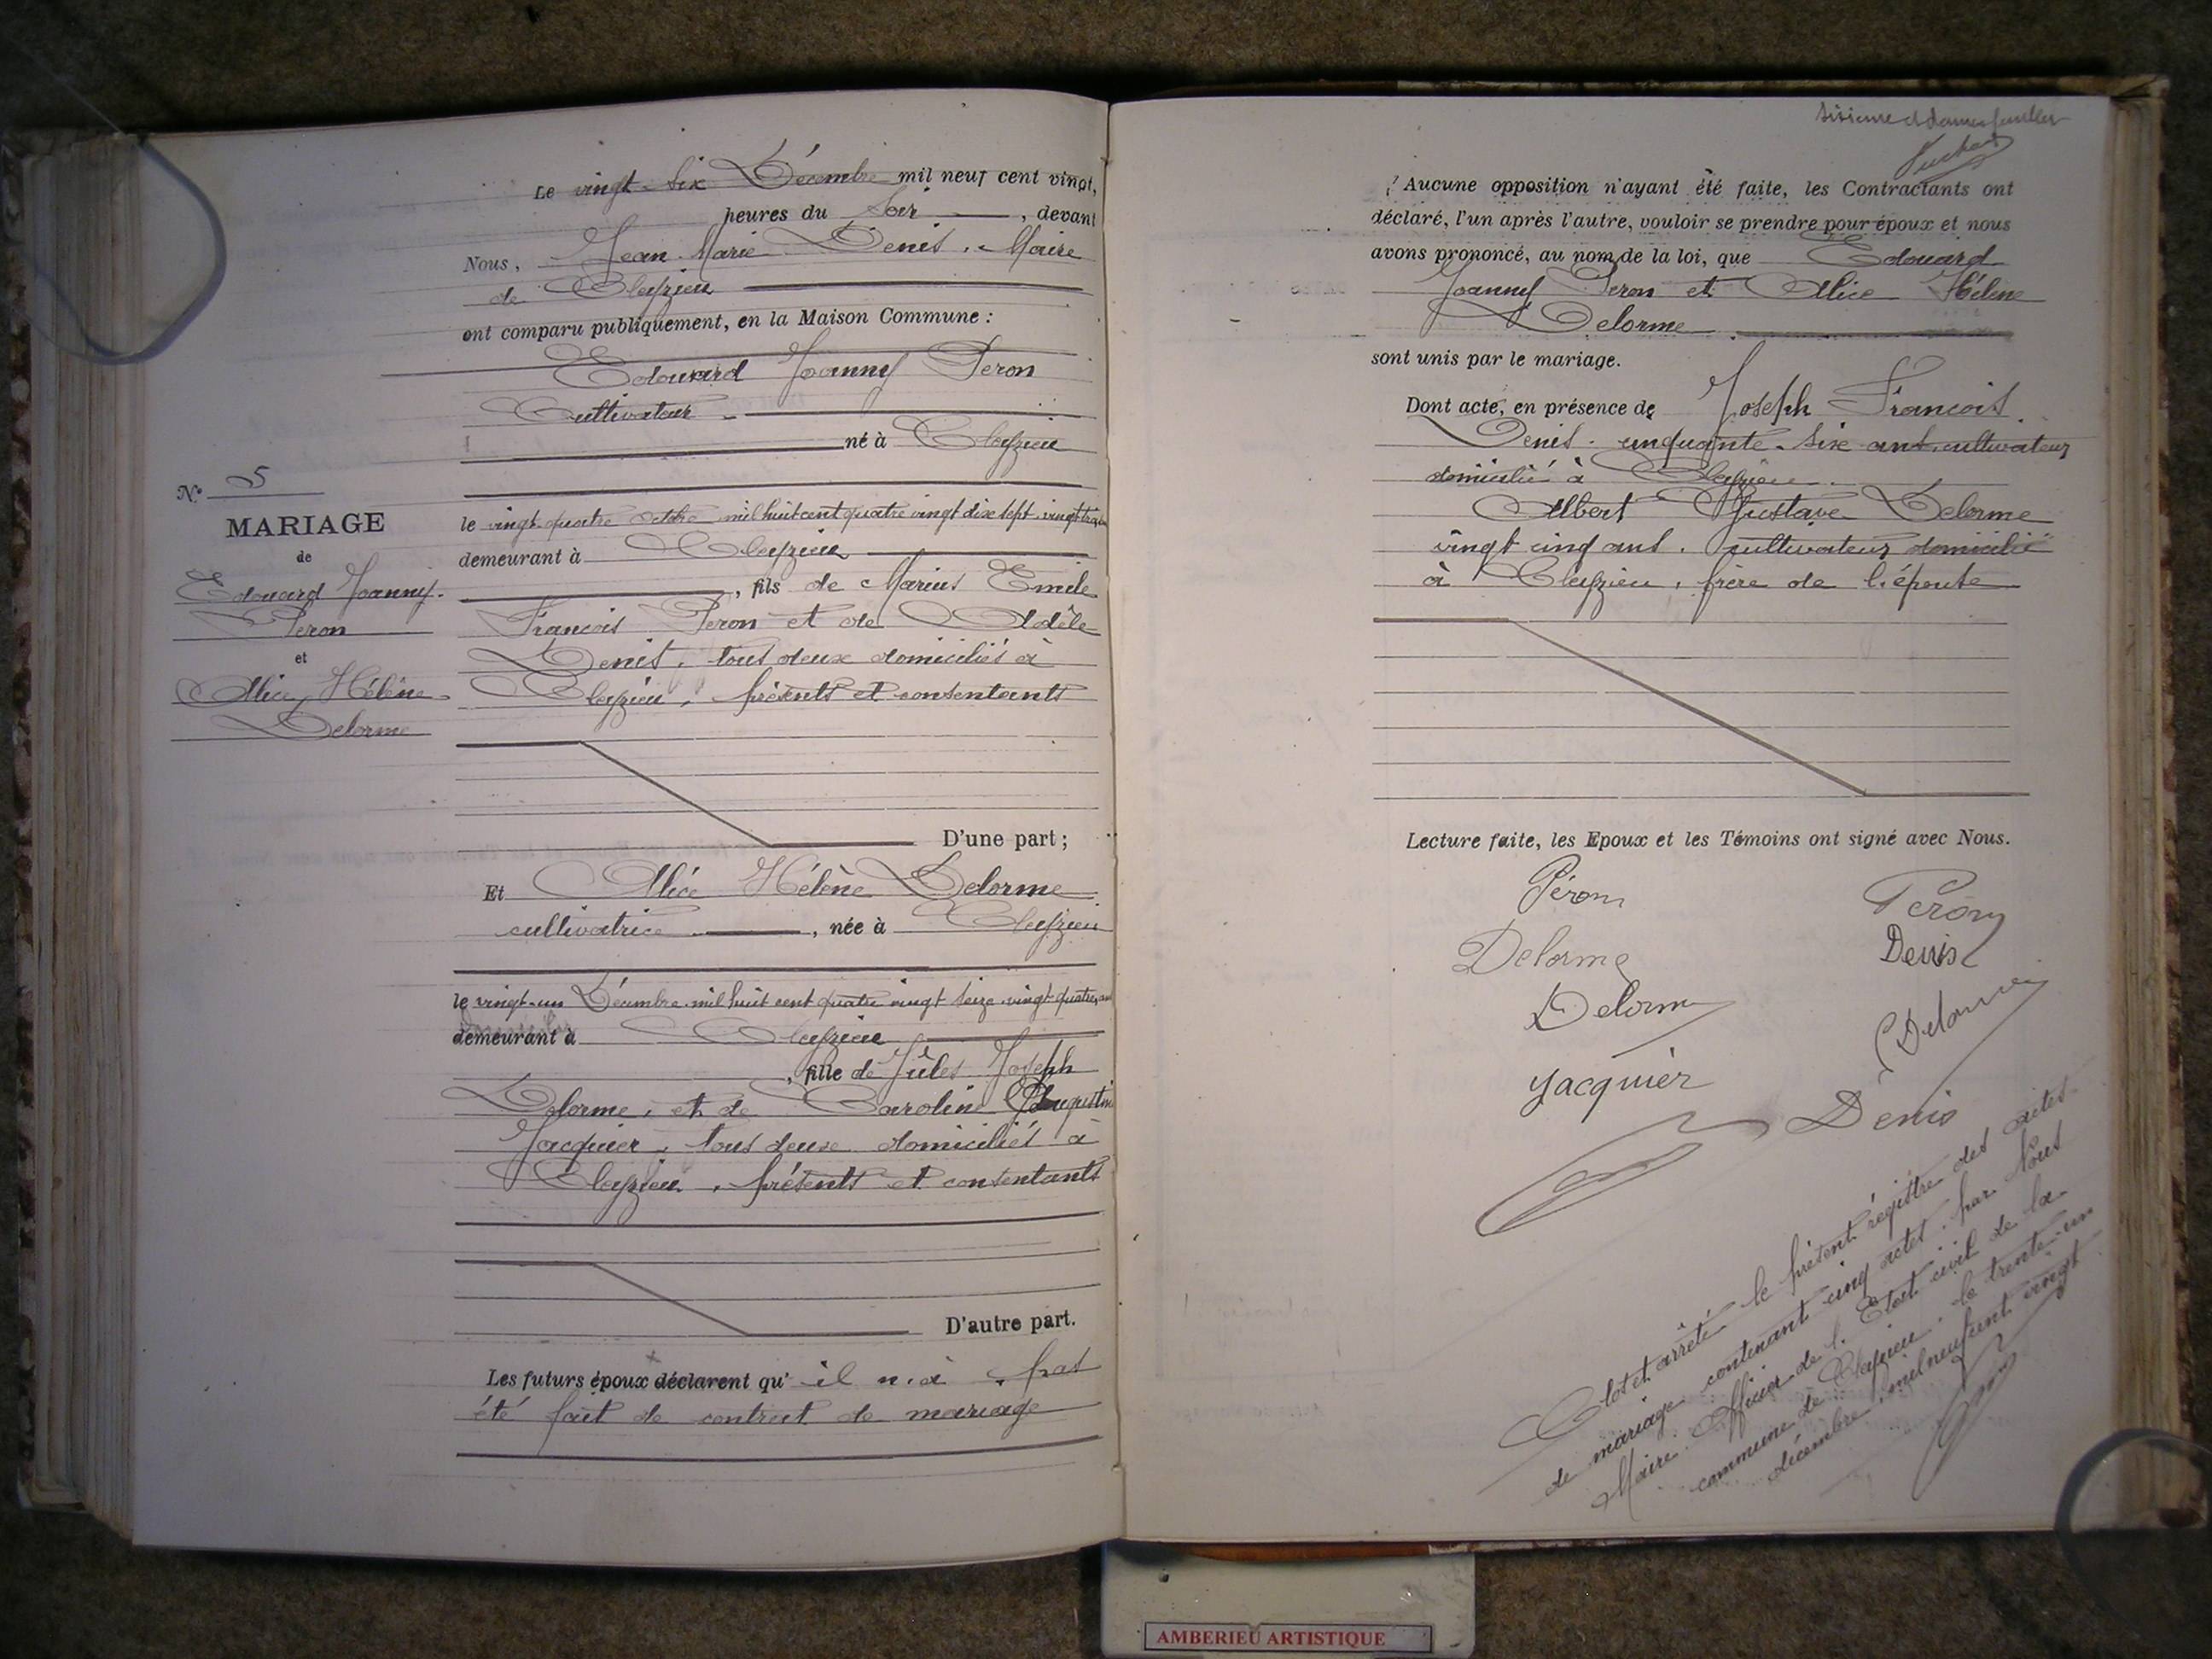 Le vingt-six Décembre mil neuf cent vingt,
heures du Soir, devant
Nous, Jean Marie Denis, Maire
de Cleyzieu
ont comparu publiquement, en la Maison Commune :
Edouard Joanny Peron
Cultivateur
né à Cleyzieu
N° 5
MARIAGE
de
Edouard Joanny
Peron
et
Alice Hélène
Delorme
le vingt-quatre octobre mil huit cent quatre vingt dix sept, vingt trois
demeurant à Cleyzieu
, fils de Marius Emile
François Peron et de Adèle
Denis, tous deux domiciliés à
Cleyzieu, présents et consentants
D'une part ;
Et Alice Hélène Delorme
cultivatrice, née à Cleyzieu
le vingt-un Décembre mil huit cent quatre vingt seize, vingt-quatre ans
demeurant à Cleyzieu
, fille de Jules Joseph
Delorme, et de Caroline Augustine
Jacquier, tous deux domiciliés à
Cleyzieu, présents et consentants
D'autre part.
Les futurs époux déclarent qu' il n'a pas
été fait de contrat de mariage
Aucune opposition n'ayant été faite, les Contractants ont
déclaré, l'un après l'autre, vouloir se prendre pour époux et nous
avons prononcé, au nom de la loi, que Edouard
Joanny Peron et Alice Hélène
Delorme
sont unis par le mariage.
Dont acte, en présence de Joseph François
Denis, cinquante-six ans, cultivateur
domicilié à Cleyzieu.
Albert Gustave Delorme
vingt cinq ans, cultivateur domicilié
à Cleyzieu, frère de l'épouse
Lecture faite, les Epoux et les Témoins ont signé avec Nous.
Péron Peron
Delorme Denis
Delorme Delorme
Jacquier Denis
Clos et arrêté le présent régistre des actes
de mariage contenant cinq actes, par Nous
Maire Officier de l'Etat civil de la
commune de Cleyzieu, le trente-un
décembre mil neuf cent vingt
AMBERIEU ARTISTIQUE